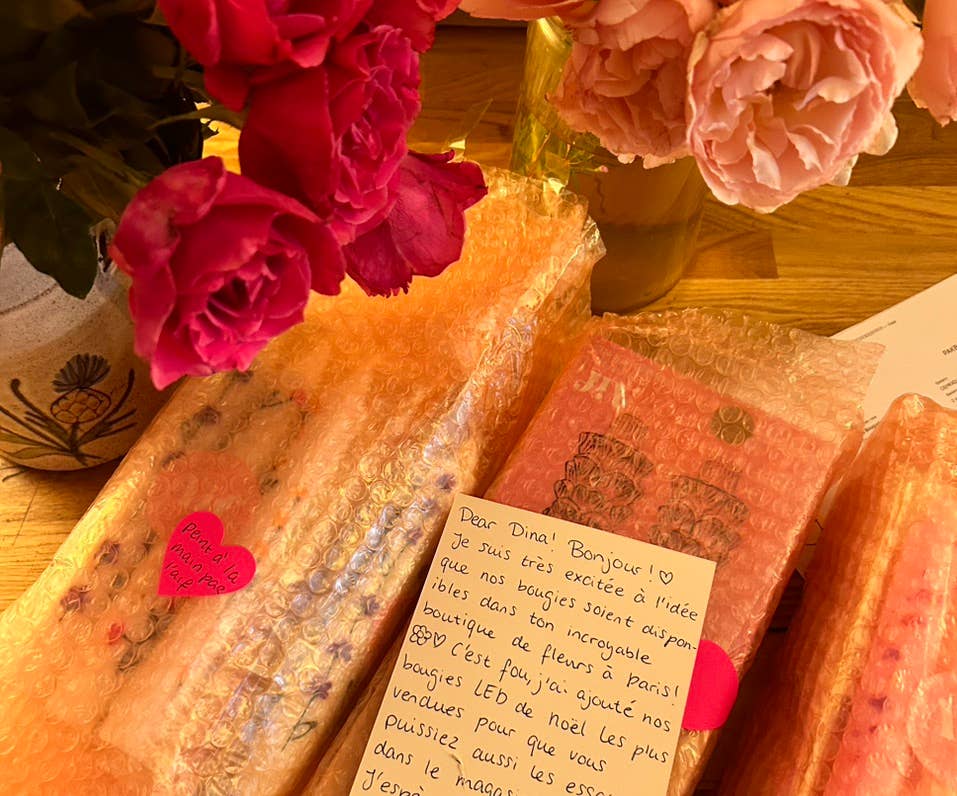 peint à la
main par
Leif
Dear Dina! Bonjour! ♡
Je suis très excitée à l'idée
que nos bougies soient dispon-
ibles dans ton incroyable
boutique de fleurs à Paris!
♡ C'est fou, j'ai ajouté nos
bougies LED de noël les plus
vendues pour que vous
puissiez aussi les
dans le
J'esp